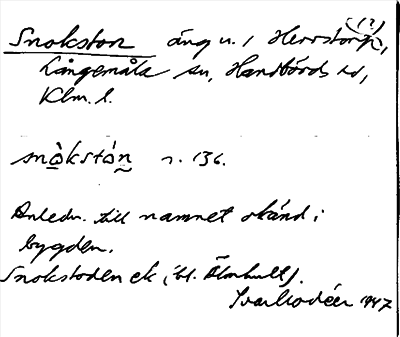 Snokston äng n. i Herrstorp (?),
Långemåla sn, Handbörds hd,
Klm. l.
snò̱kstó̀n s. 136.
Anledn. till namnet okänd i
bygden.
Snokstoden ek (bl. Älmhult).
Ivar Modéer 1947